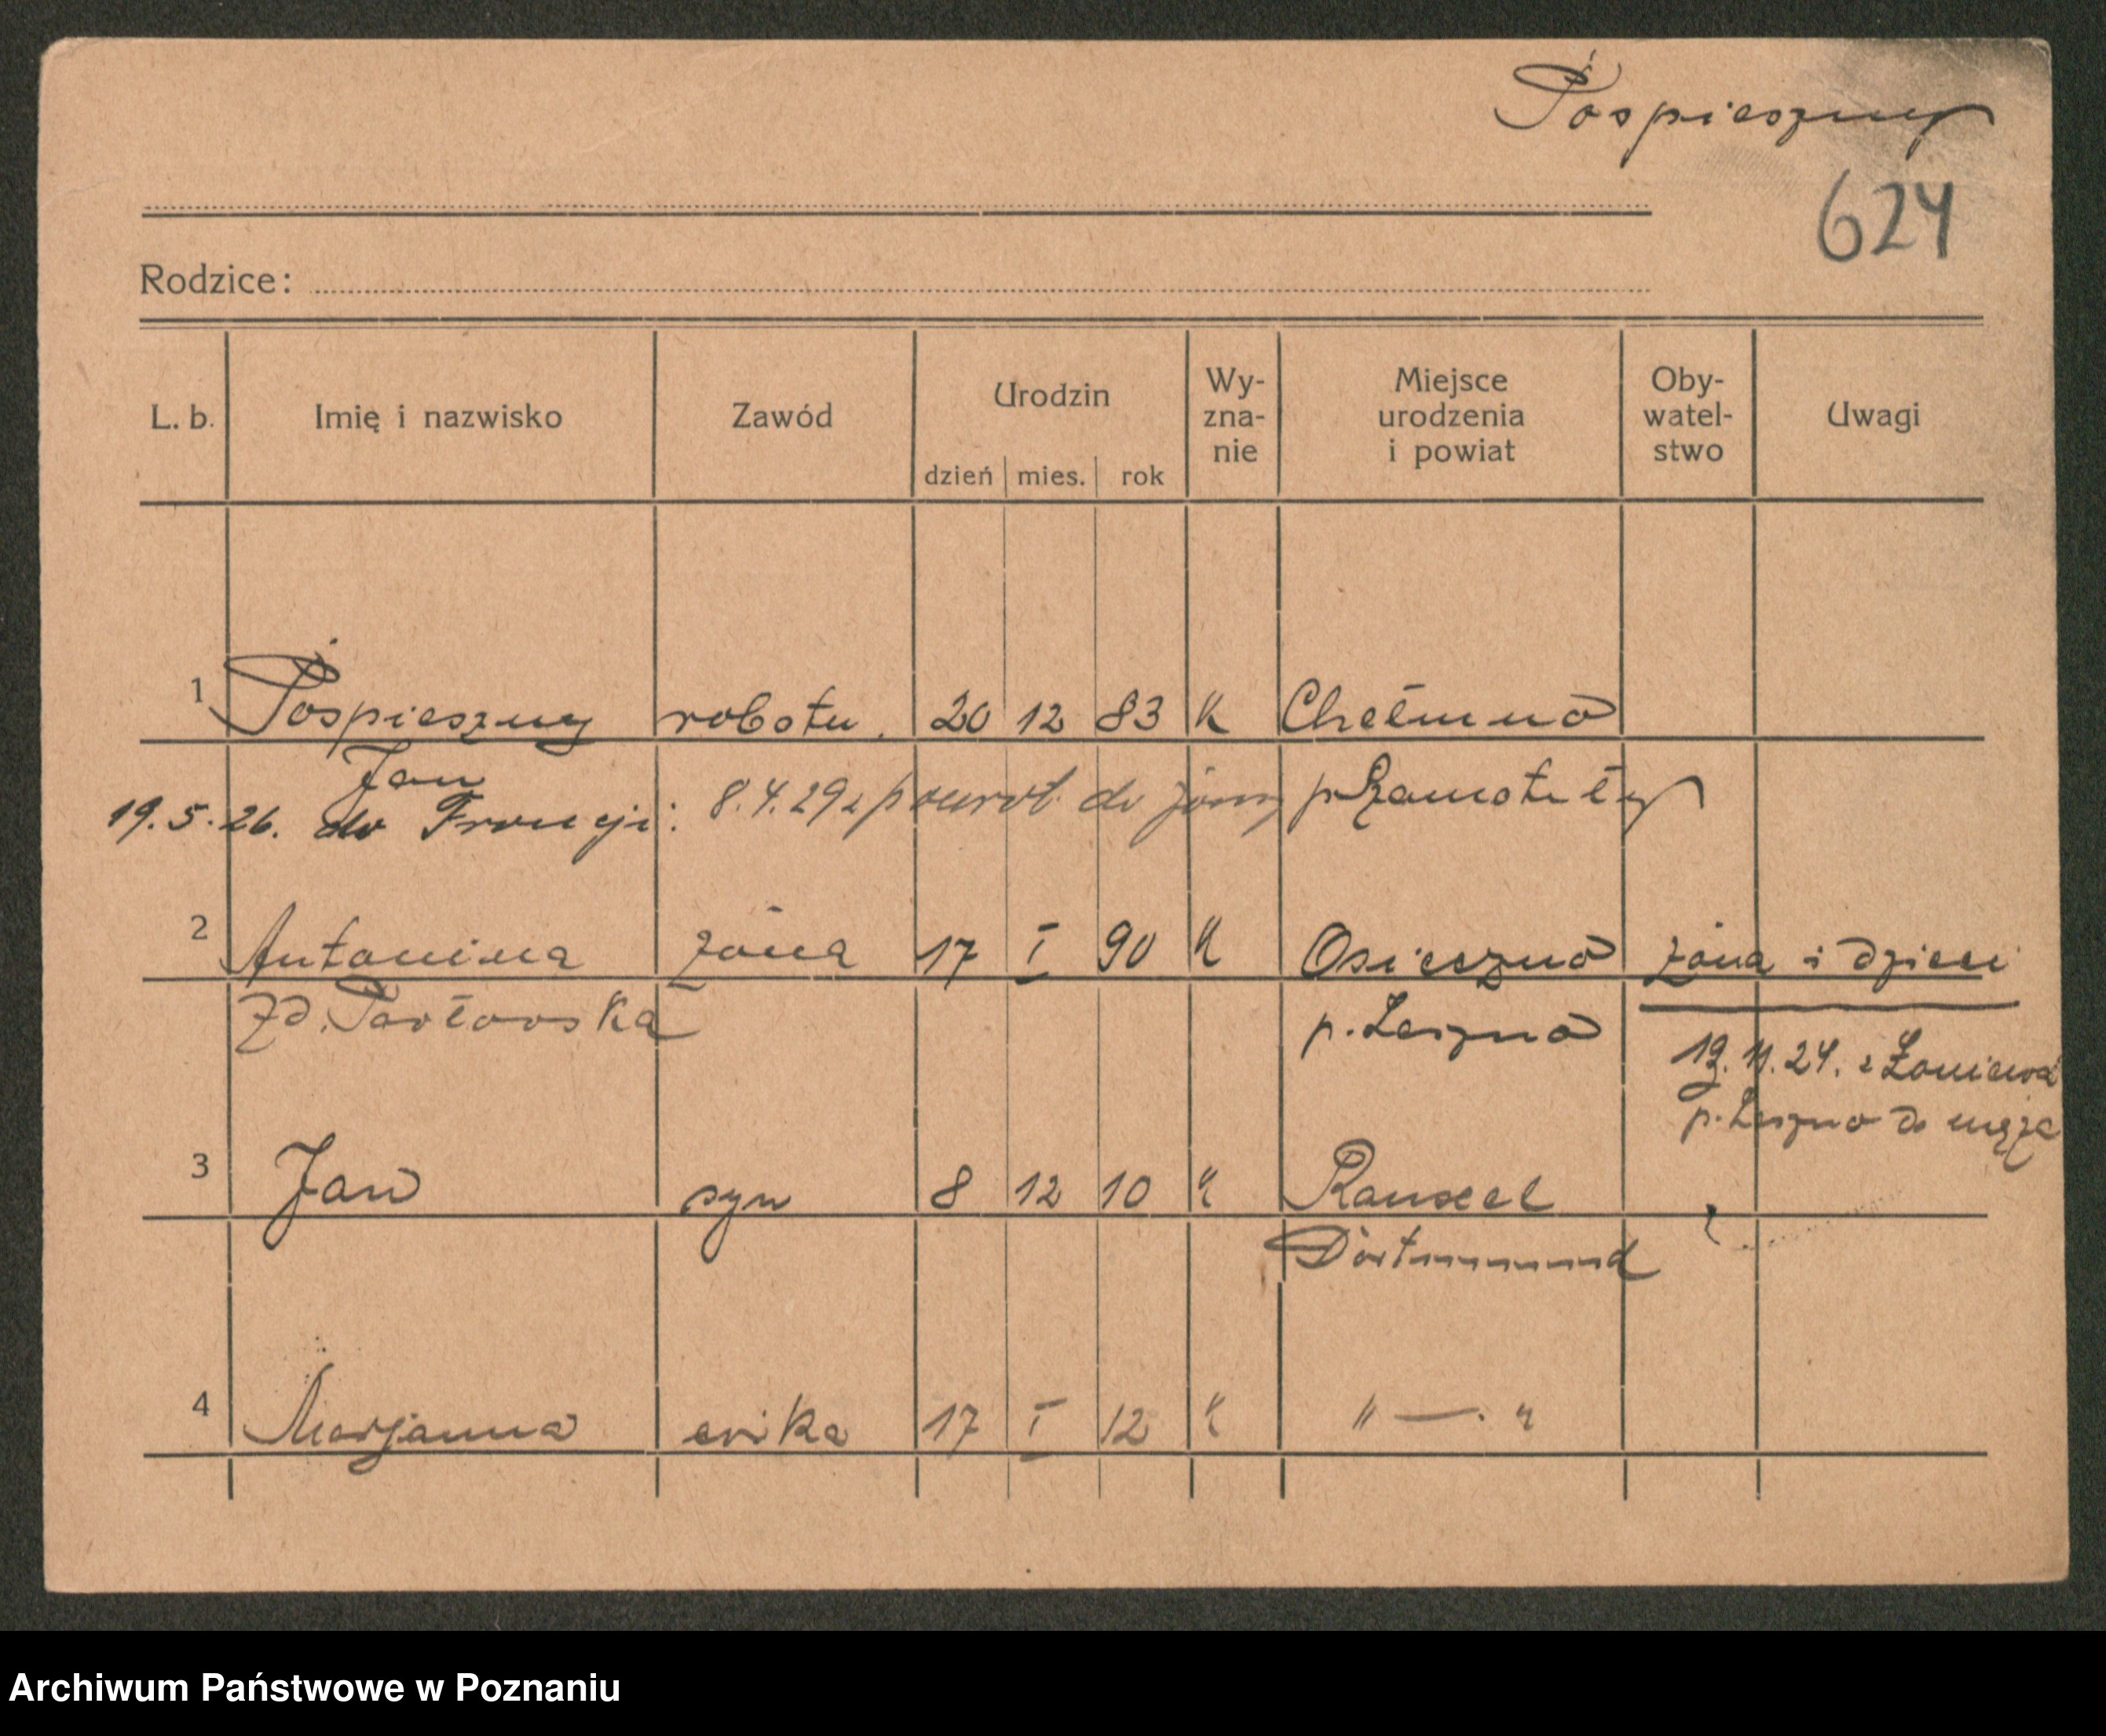 Pośpieszny
624
Rodzice:
L. b.
Imię i nazwisko
Zawód
Urodzin
dzień mies. rok
Wy-
zna-
nie
Miejsce
urodzenia
i powiat
Oby-
watel-
stwo
Uwagi
1 Pośpieszny robotn. 20 12 83 K Chełmno
Jan
19.5.26. do Francji: 8.4.29 z powrot. do żony p Szamotuły
2 Antonina żona 17 I 90 K Osieczno żona i dzieci
zd. p. Leszno
11.24. z
p. Leszno do męża
3 Jan syn 8 12 10 K Rauxel
Dortmund
4 Marjanna córka 17 I 12 K " — . "
Archiwum Państwowe w Poznaniu